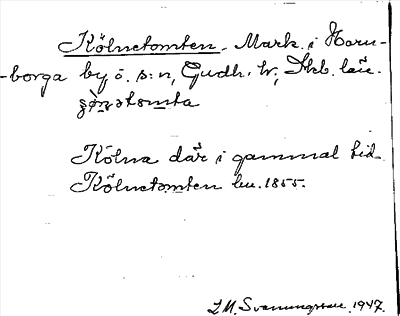 Kölnetomten. Mark i Horn-
-borga by o. s:n, Gudh. hr, Skb. län.
Kölna där i gammal tid.
Kölnetomten bu. 1855.
L.M. Svanungsson. 1947.